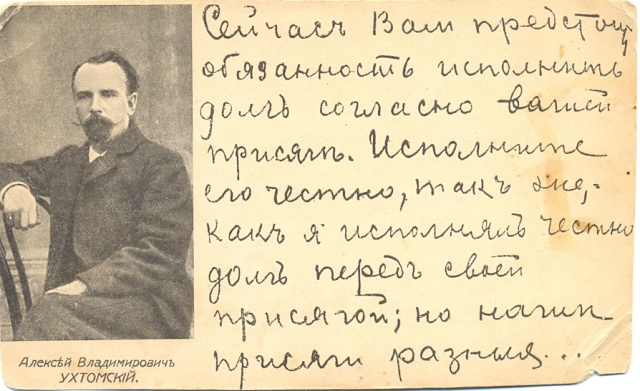 Сейчасъ Вамъ предстоитъ
обязанность исполнить
долгъ согласно вашей
присяги. Исполните
его честно, такъ же,
какъ я исполнялъ честно
долгъ передъ своей
присягой; но наши
присяги разныя...
Алексѣй Владимировичъ
УХТОМСКІЙ.